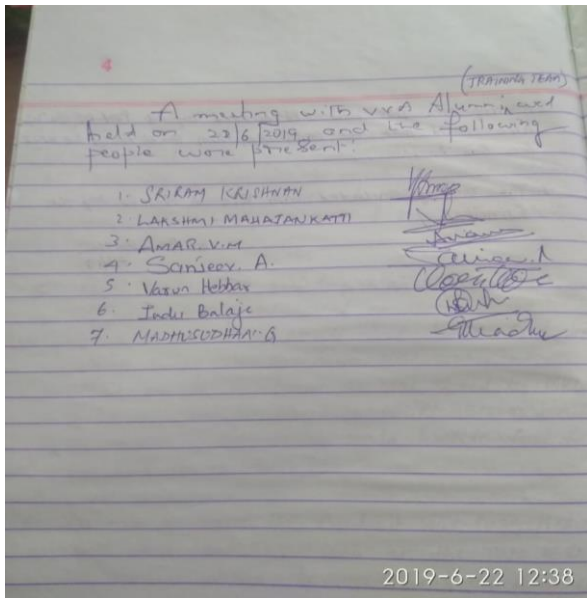 4
(TRAINING TEAM)
A meeting with VVA Alumni
held on 22/6/2019 and the following
people were present:
1. SRIRAM KRISHNAN
2. LAKSHMI MAHAJANKATTI
3. AMAR.V.M
4. Sanjeev. A.
5. Varun Hebbar
6. Indu Balaji
7. MADHUSUDHAN.G
2019-6-22 12:38